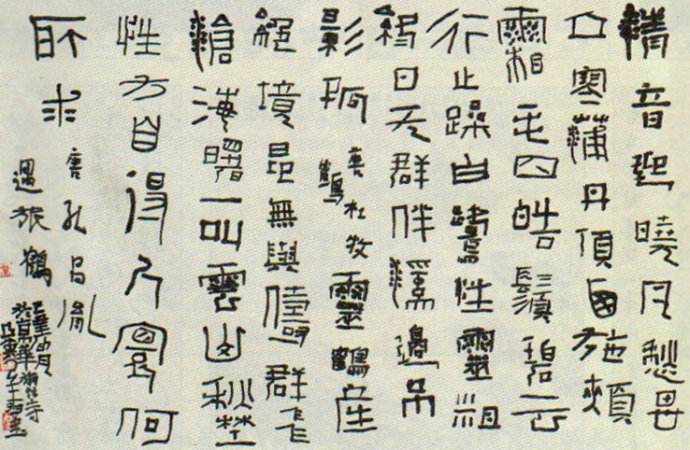 清音迎曉月愁思
立寒蒲丹頂西施頰
霜毛四皓鬚碧云
行止躁白鷺性靈粗
終日无群伴溪邊吊
影孤 唐杜牧 鶴 靈鶴産
絕境昂無與儔群飛
滄海曙一叫雲山秋埜
性方自得人寰何
所求 唐孔昌胤
遇旅鶴